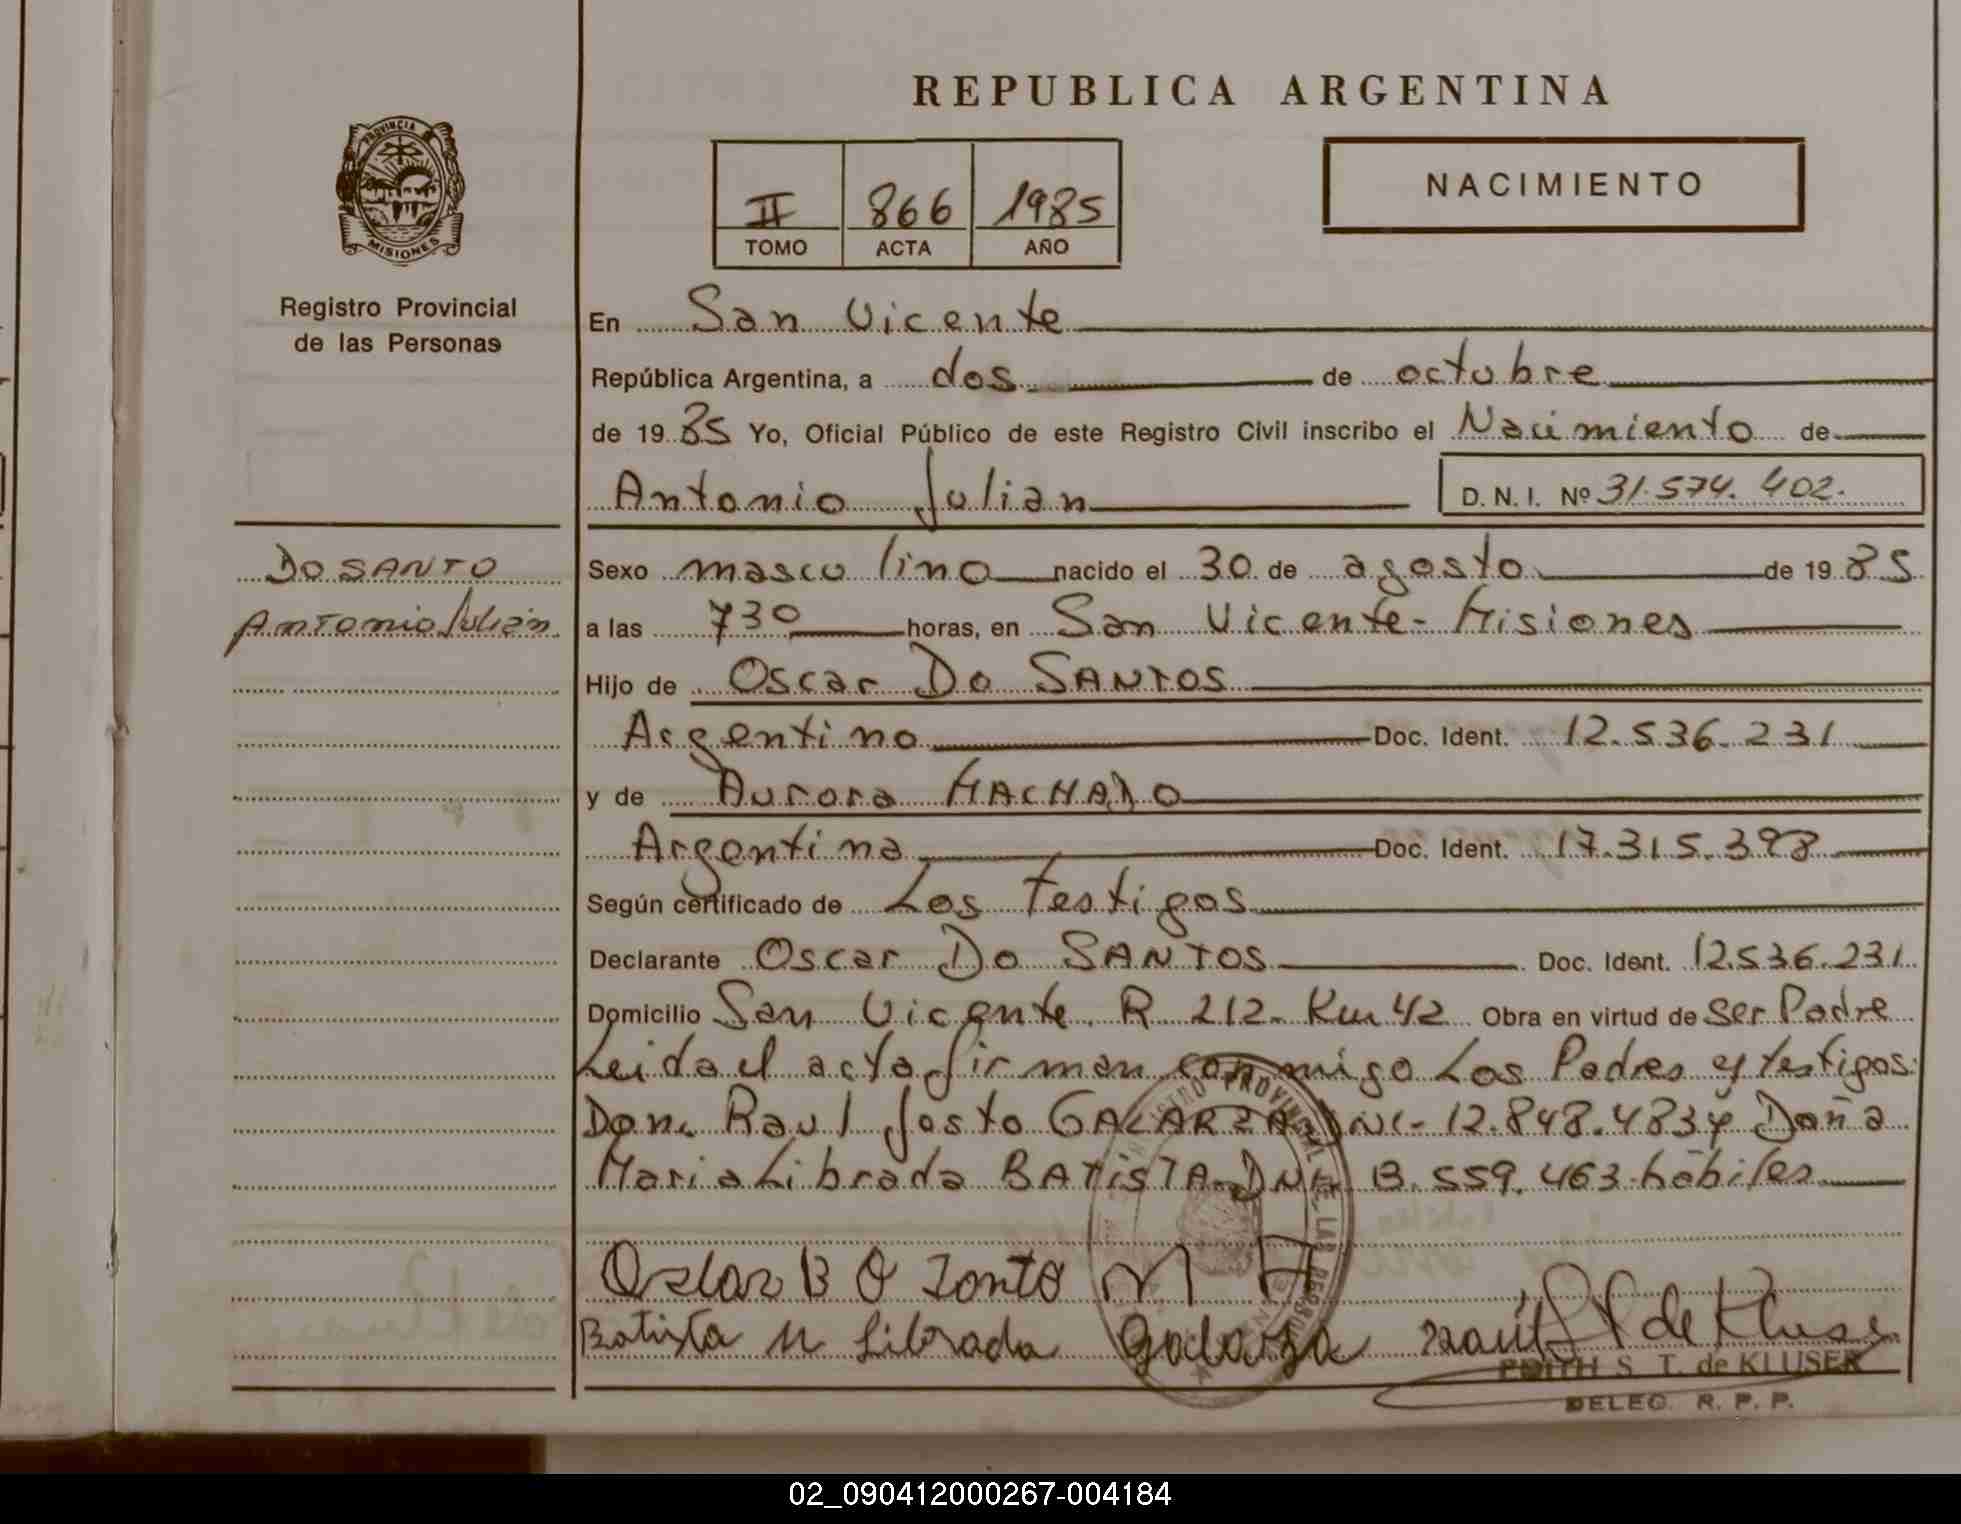 REPUBLICA ARGENTINA
PROVINCIA
MISIONES
Registro Provincial
de las Personas
II 866 1985
TOMO ACTA AÑO
NACIMIENTO
En San Vicente
República Argentina, a dos de octubre
de 19 85 Yo, Oficial Público de este Registro Civil inscribo el Nacimiento de
Antonio Julian D. N. I. Nº 31.574.402.
DO SANTO
Antonio Julián
Sexo masculino nacido el 30 de agosto de 19 85
a las 730 horas, en San Vicente - Misiones
Hijo de Oscar Do SANTOS
Argentino Doc. Ident. 12.536.231
y de Aurora MACHADO
Argentina Doc. Ident. 17.315.398
Según certificado de Los Testigos
Declarante Oscar Do SANTOS Doc. Ident. 12.536.231
Domicilio San Vicente R 212- Km 42 Obra en virtud de Ser Padre
Leida el acta firman conmigo Los Padres y testigos:
Don. Raul Josto GALARZA DNI- 12.848.483 y Doña
Maria Librada BATISTA DNI- 13.559.463 hábiles
Oscar Santo M
Batista M Librada Galarza Raúl de Kluser
EDITH S. T. de KLUSER
DELEG. R. P. P.
REGISTRO PROVINCIAL DE LAS PERSONAS
02_090412000267-004184